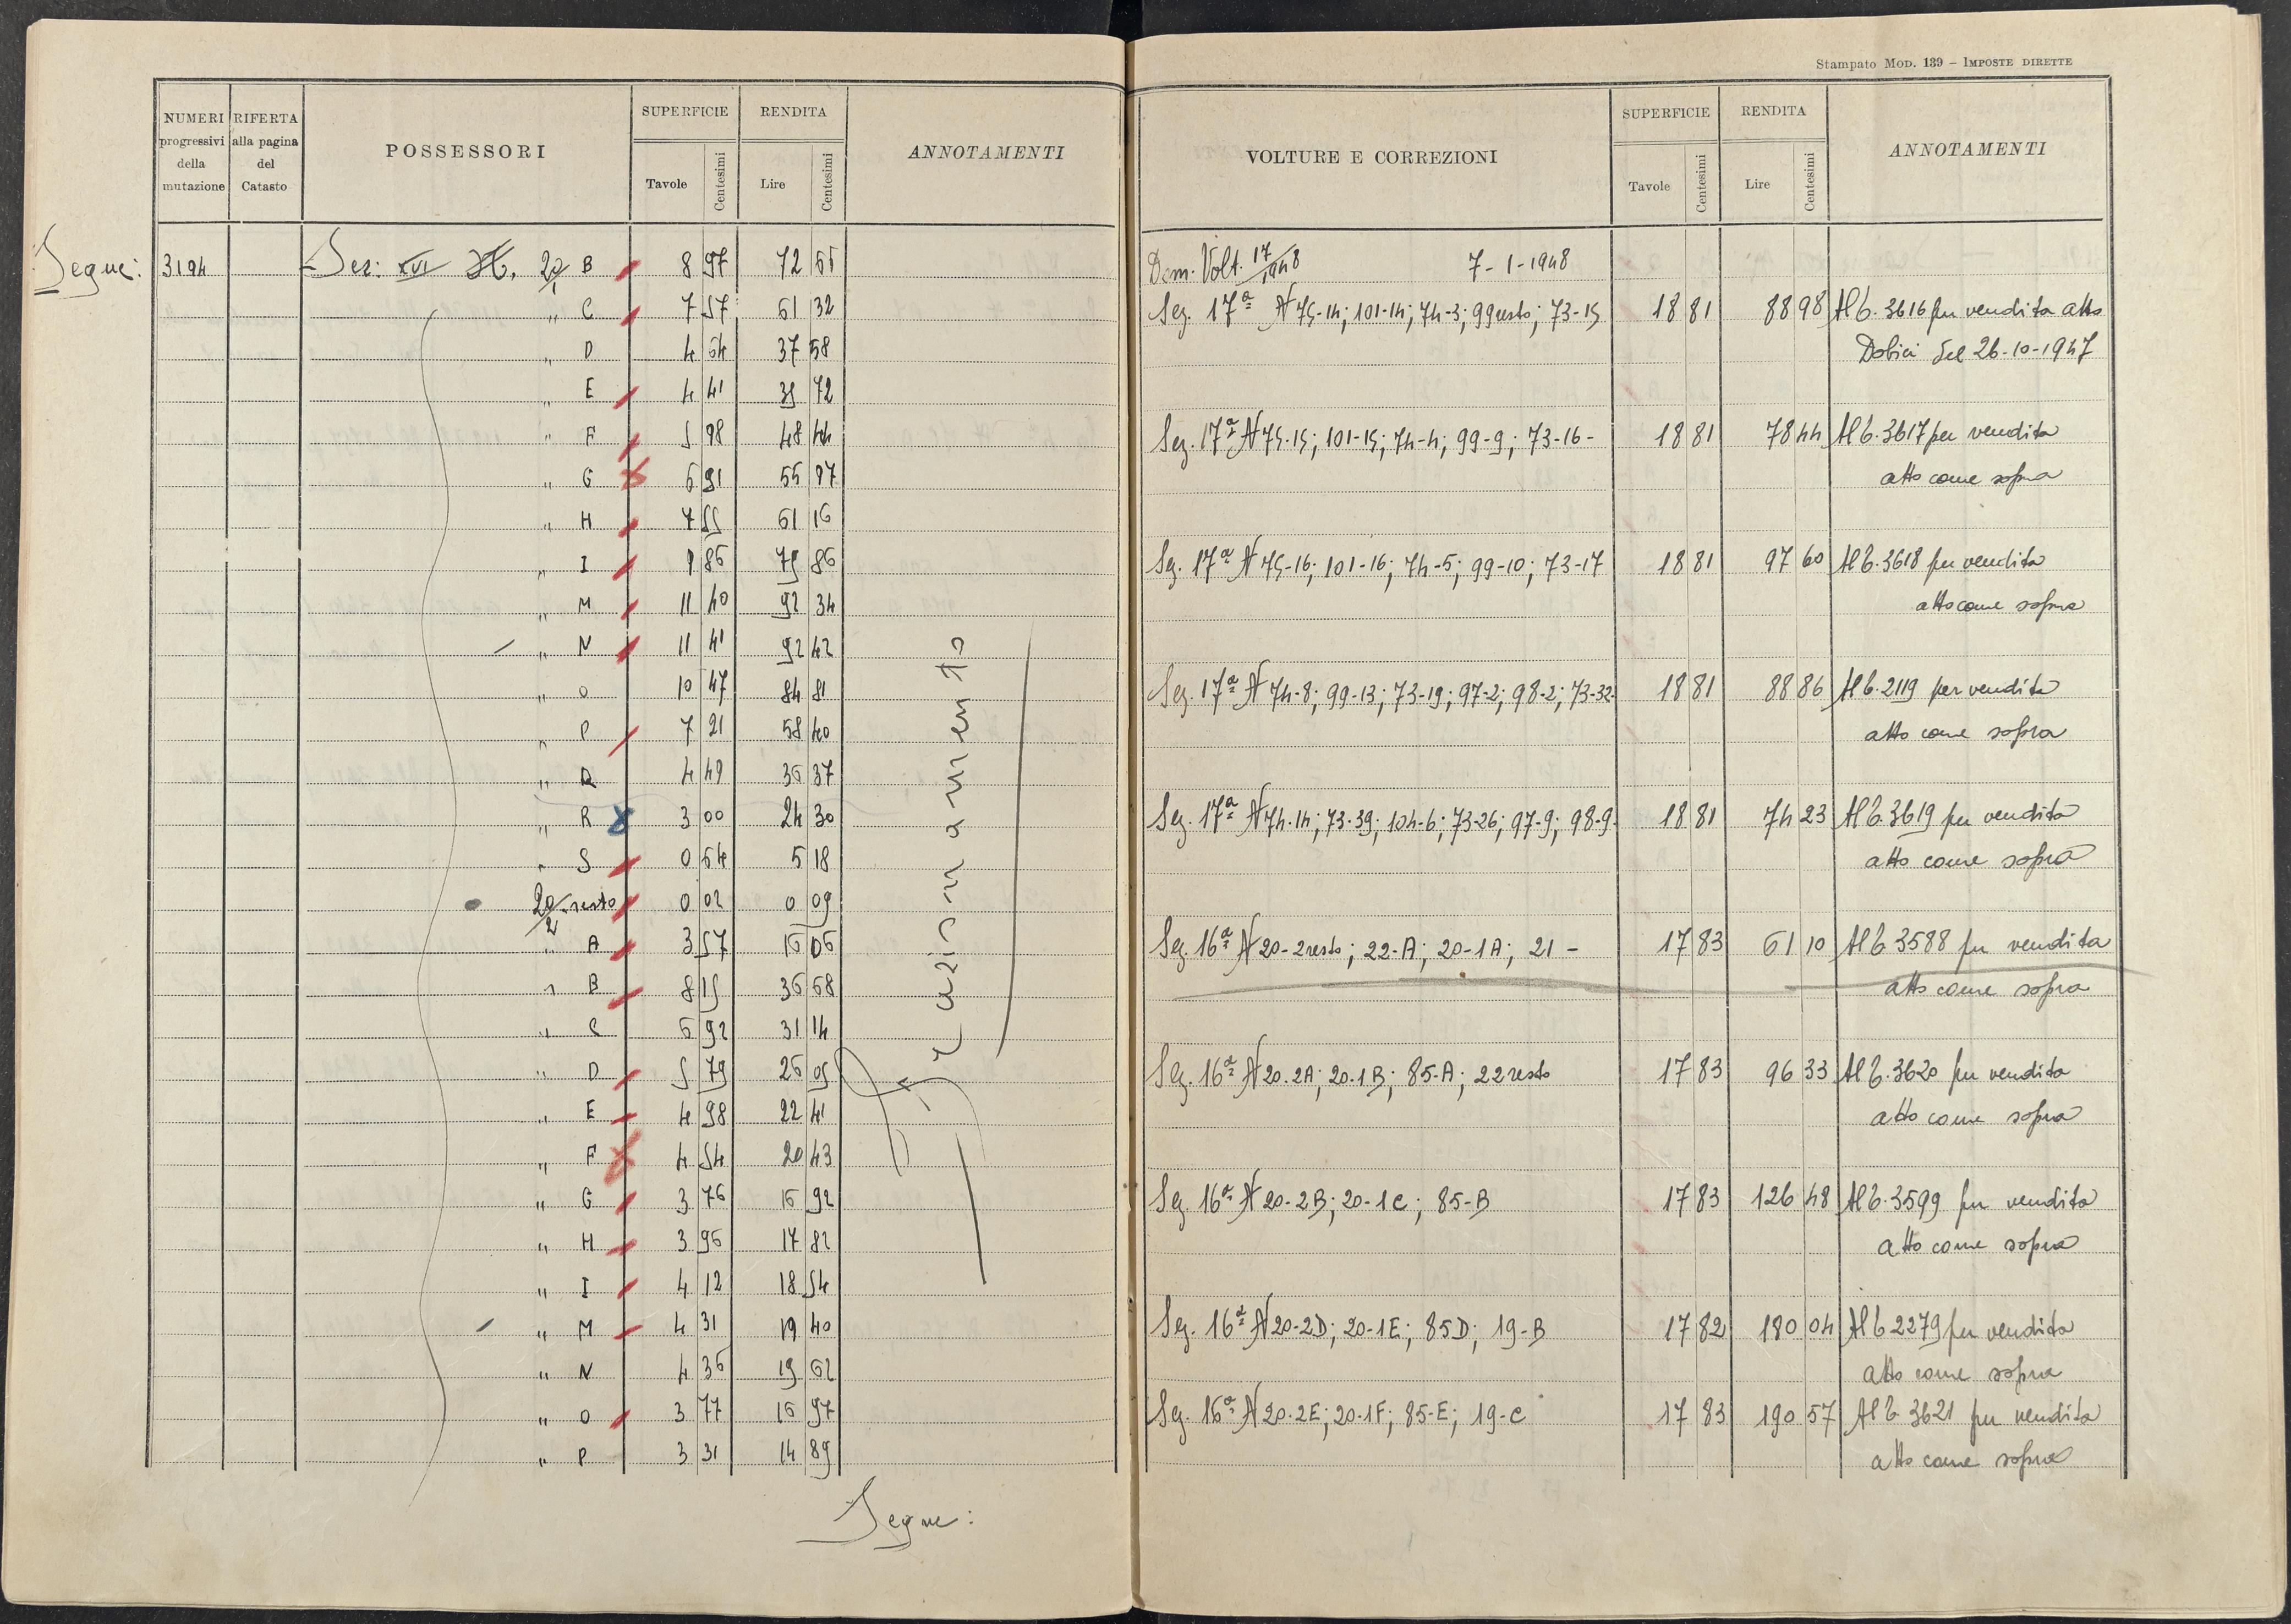 Stampato Mod. 139 – Imposte dirette
NUMERI progressivi della mutazione
RIFERTA alla pagina del Catasto
POSSESSORI
SUPERFICIE
Tavole
Centesimi
RENDITA
Lire
Centesimi
ANNOTAMENTI
Segue:
3194 Sez: XVI N. 20/1 B 8 97 72 65
" C 7 57 61 32
" D 4 64 37 58
" E 4 41 35 72
" F 5 98 48 44
" G 6 91 55 97
" H 7 55 61 16
" I 9 86 79 86
" M 11 40 92 34
" N 11 41 92 42
" O 10 47 84 81
" P 7 21 58 40
" Q 4 49 36 37
" R 3 00 24 30
" S 0 64 5 18
20/2 resto 0 02 0 09
" A 3 57 16 06
" B 8 15 36 68
" C 6 92 31 14
" D 5 79 26 05
" E 4 98 22 41
" F 4 54 20 43
" G 3 76 16 92
" H 3 96 17 82
" I 4 12 18 54
" M 4 31 19 40
" N 4 36 19 62
" O 3 77 16 97
" P 3 31 14 89
Frazionamento
Segue:
VOLTURE E CORREZIONI
SUPERFICIE
Tavole
Centesimi
RENDITA
Lire
Centesimi
ANNOTAMENTI
Dom. Volt. 17/1948 7-1-1948
Sez. 17ª N 75-14; 101-14; 74-3; 99 resto; 73-15 18 81 88 98 Al 6. 3616 per vendita atto
Dobici del 26-10-1947
Sez. 17ª N 75-15; 101-15; 74-4; 99-9; 73-16- 18 81 78 44 Al 6. 3617 per vendita
atto come sopra
Sez. 17ª N 75-16; 101-16; 74-5; 99-10; 73-17 18 81 97 60 Al 6. 3618 per vendita
atto come sopra
Sez. 17ª N 74-8; 99-13; 73-19; 97-2; 98-2; 73-32- 18 81 88 86 Al 6. 2119 per vendita
atto come sopra
Sez. 17ª N 74-14; 73-39; 104-6; 73-26; 97-9; 98-9- 18 81 74 23 Al 6. 3619 per vendita
atto come sopra
Sez. 16ª N 20-2 resto; 22-A; 20-1A; 21- 17 83 61 10 Al 6 3588 per vendita
atto come sopra
Sez. 16ª N 20-2A; 20-1B; 85-A; 22 resto 17 83 96 33 Al 6. 3620 per vendita
atto come sopra
Sez. 16ª N 20-2B; 20-1C; 85-B 17 83 126 48 Al 6. 3599 per vendita
atto come sopra
Sez. 16ª N 20-2D; 20-1E; 85D; 19-B 17 82 180 04 Al 6 2279 per vendita
atto come sopra
Sez. 16ª N 20-2E; 20-1F; 85-E; 19-C 17 83 190 57 Al 6 3621 per vendita
atto come sopra